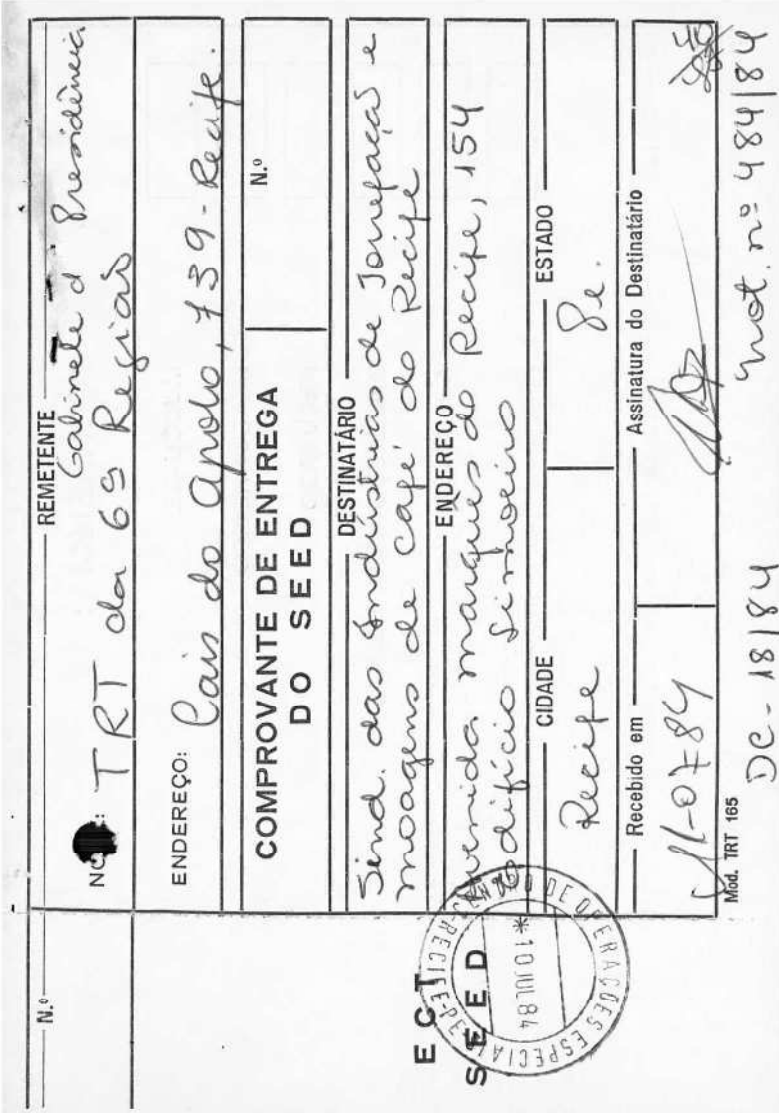 N.º
REMETENTE
Gabinete d Presidência
TRT da 6ª Região
ENDEREÇO: Cais do Apolo, 739 - Recife.
COMPROVANTE DE ENTREGA
DO SEED
N.º
DESTINATÁRIO
Sind. das Indústrias de Torrefação e
moagens de café do Recife
ENDEREÇO
Avenida marquês do Recife, 154
Edifício Limoeiro
CIDADE
ESTADO
Recife
Pe.
Recebido em
Assinatura do Destinatário
11-0784
Mod. TRT 165
DC - 18/84
not. nº 484/84
ECT
SEED
* 10 JUL 84
OPERAÇÕES ESPECIAIS
RECIFE